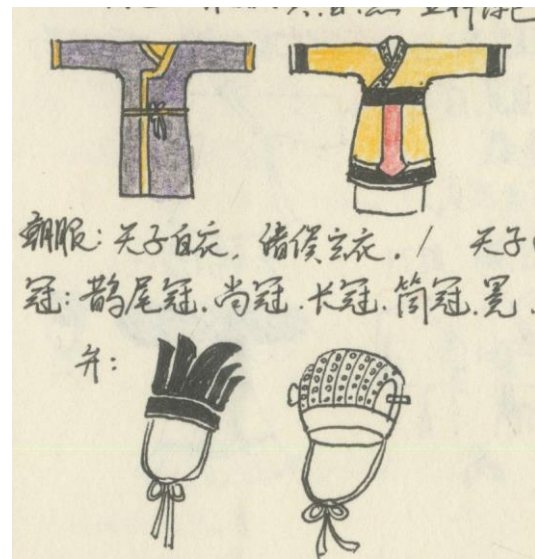 朝服：天子白衣，诸侯玄衣． / 天子
冠：鹊尾冠．尚冠．长冠．筒冠．冕．
弁：